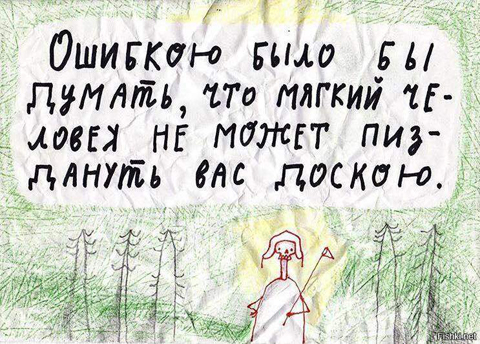 Ошибкою было бы
думать, что мягкий че-
ловек не может пиз-
дануть вас доскою.
Fishki.net